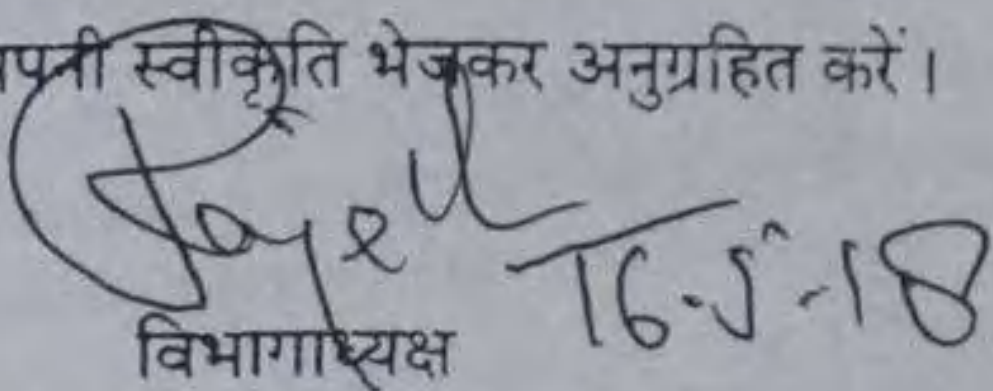 पनी स्वीकृति भेजकर अनुग्रहित करें।
16.5.18
विभागाध्यक्ष